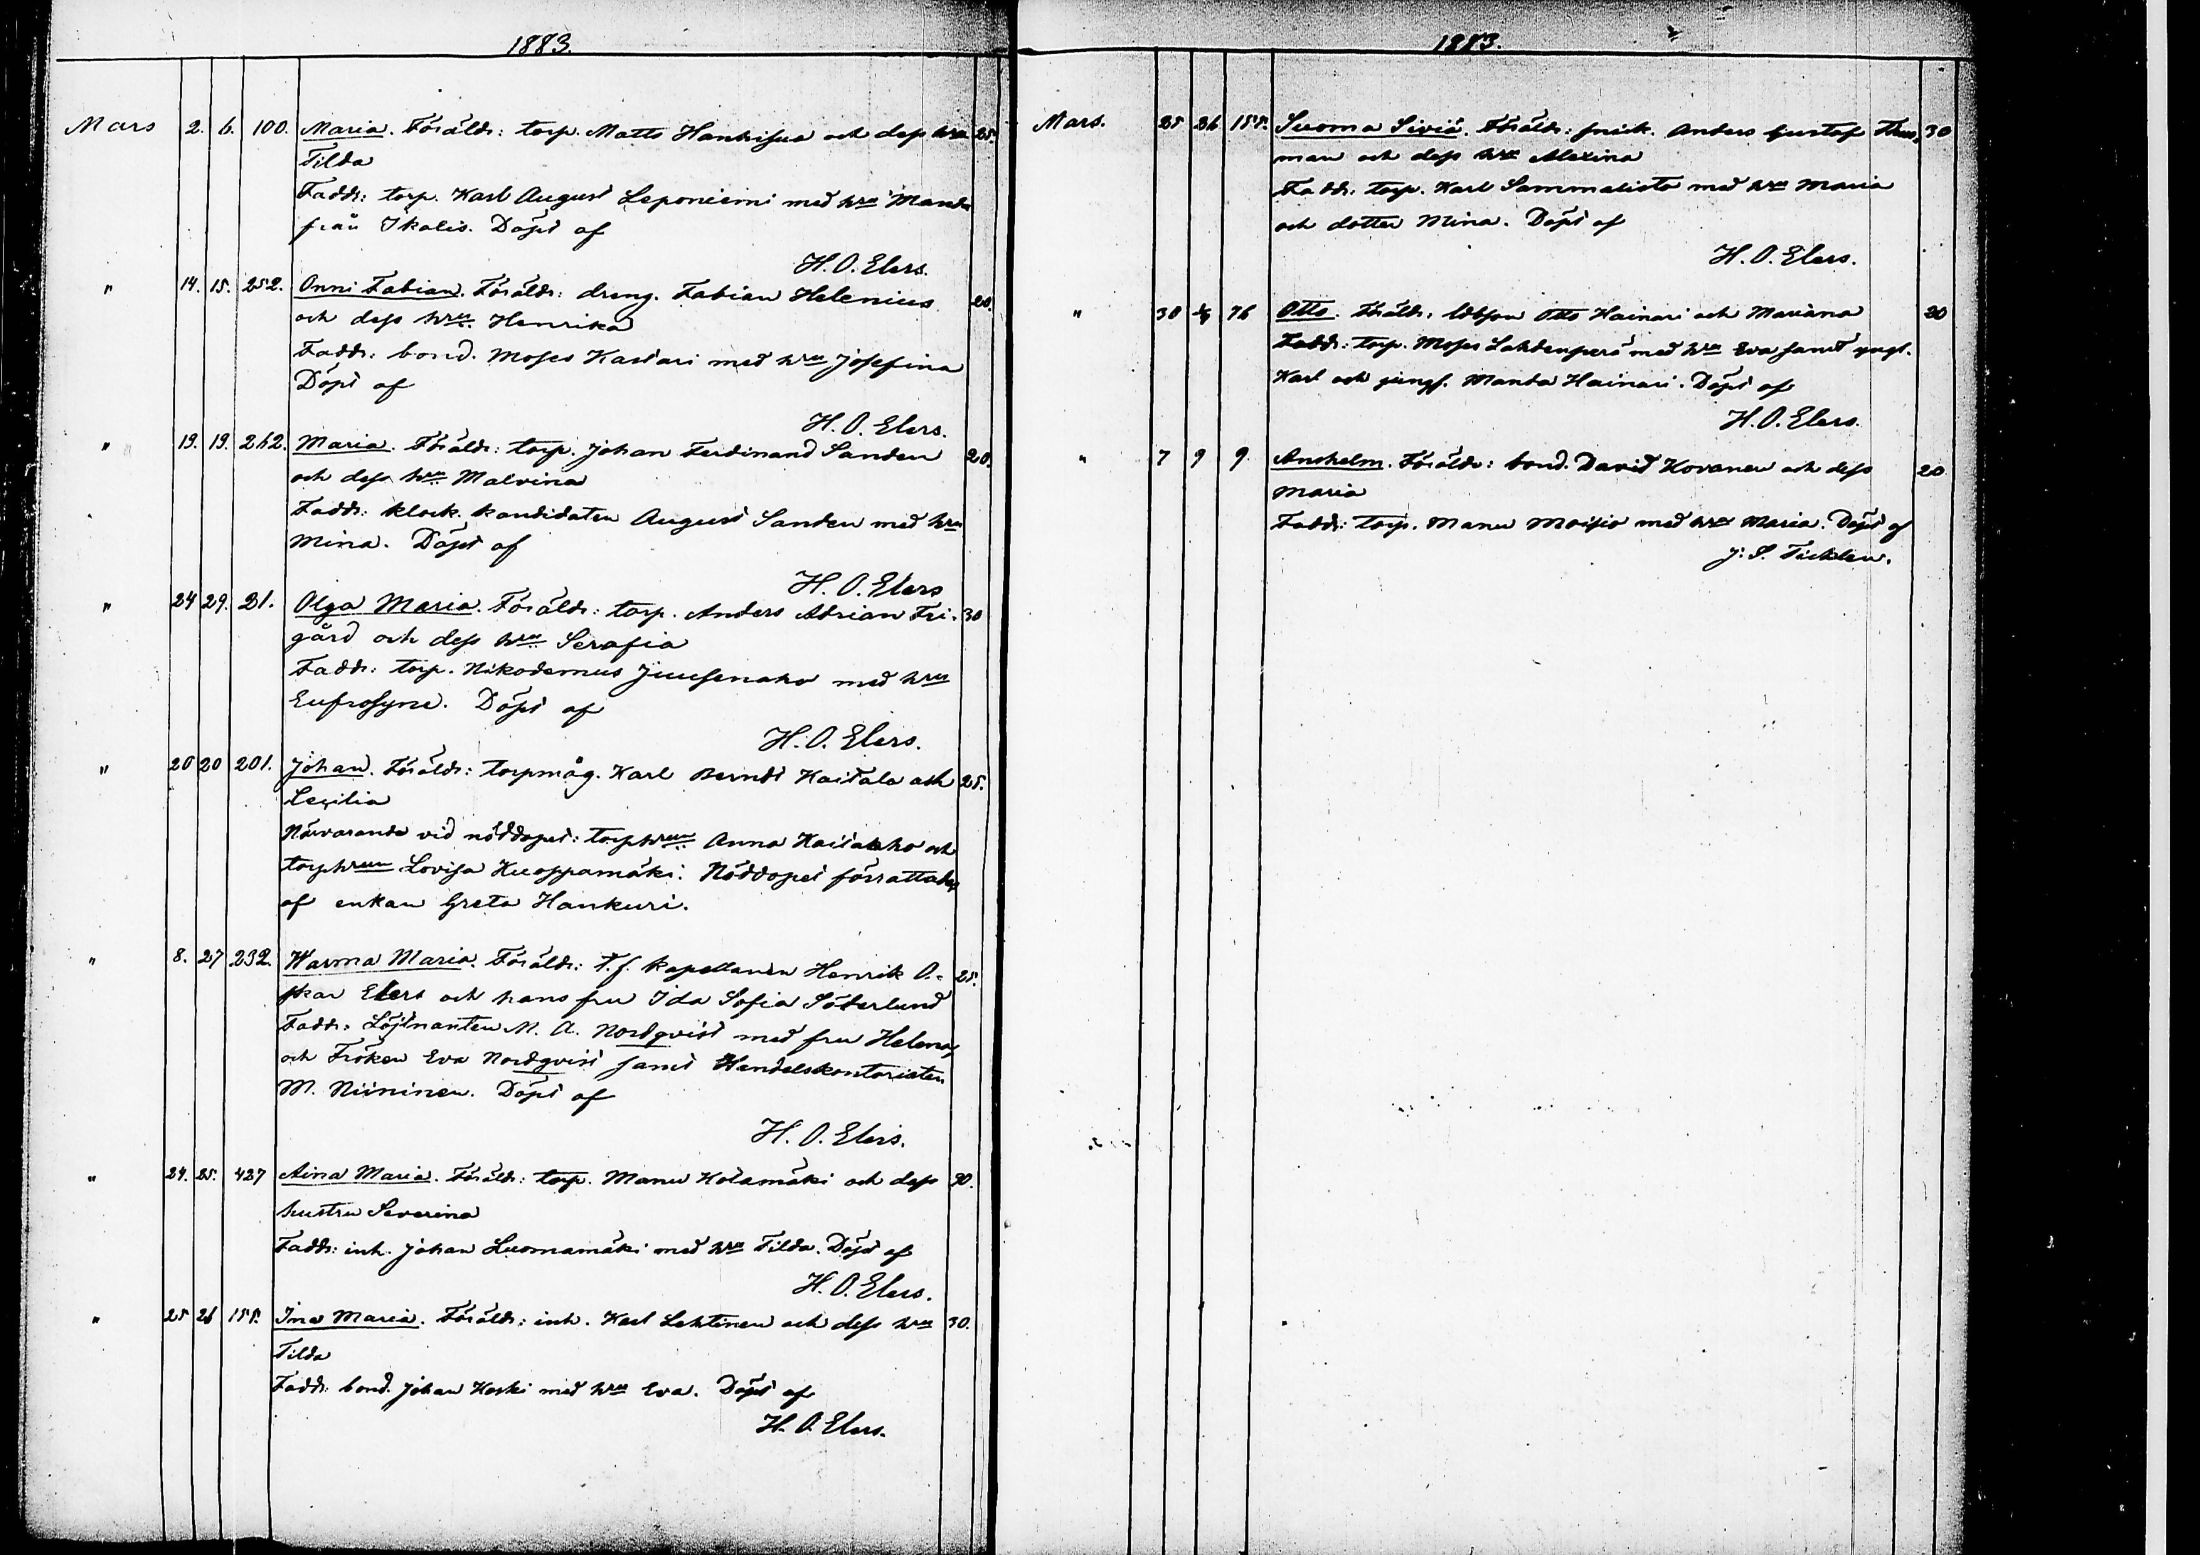 1883.
Mars 2. 6. 100. Maria. Föräldr: torp. Matts Hankijua och dess hru 25.
Tilda
Faddr: torp. Karl August Leponiemi med hru Manda
från Ikalis. Döpt af
H. O. Elers.
" 14. 15. 252. Onni Fabian. Föräldr: dreng. Fabian Helenius 20.
och dess hru Henrika
Faddr: bond. Moses Kastari med hru Josefina
Döpt af
H. O. Elers.
" 19. 19. 262. Maria. Föräldr: torp. Johan Ferdinand Sanden 20.
och dess hru Malvina
Faddr: klock. kandidaten August Sanden med hru
Mina. Döpt af
H. O. Elers
" 24 29. 31. Olga Maria. Föräldr: torp. Anders Adrian Fri- 30
gård och dess hru Serafia
Faddr: torp. Nikodemus Juusenaho med hru
Eufrosyne. Döpt af
H. O. Elers.
" 20 20 201. Johan. Föräldr: torpmåg. Karl Berndt Kaitala och 25.
Cecilia
Närvarande vid nöddopet: torphrun Anna och
torphrun Lovisa Kuoppamäki. Nöddopet förrattades
af enkan Greta Hankuri.
" 8. 27 232. Warma Maria. Föräldr: T. f. kapellanen Henrik O- 25.
skar Elers och hans fru Ida Sofia Söderlund
Faddr: Löjtnanten M. A. Nordqvist med fru Helena,
och Fröken Eva Nordqvist samt Handelskontoristen
M. Niininen. Döpt af
H. O. Elers.
" 24. 25. 427 Aina Maria. Föräldr: torp. Manu Kotamäki och dess 30.
hustru Severina
Faddr: inh. Johan Luomamäki med hru Tilda. Döpt af
H. O. Elers.
" 25 26 155. Ina Maria. Föräldr: inh. Karl Lehtinen och dess hru 30.
Tilda
Faddr: bond. Johan Koski med hru Eva. Döpt af
H. O. Elers.
1883.
Mars. 25 26 155. Suoma Siviä. Föräldr: snick. Anders Gustaf 30
man och dess hru Alexina
Faddr: torp. Karl Sammalisto med hru Maria
och dotter Mina. Döpt af
H. O. Elers.
" 30 76 Otto. Föräldr: Otto Hainari och Mariana 20
Faddr: torp. Moses Lahdenperä med hru Eva samt yngl.
Karl och jungf. Manda Hainari. Döpt af
H. O. Elers.
" 7 9 9 Anshelm. Föräldr: bond. David Kovanen och dess 20
Maria
Faddr: torp. Manu Moisio med hru Maria. Döpt af
J. S. Ticklen.